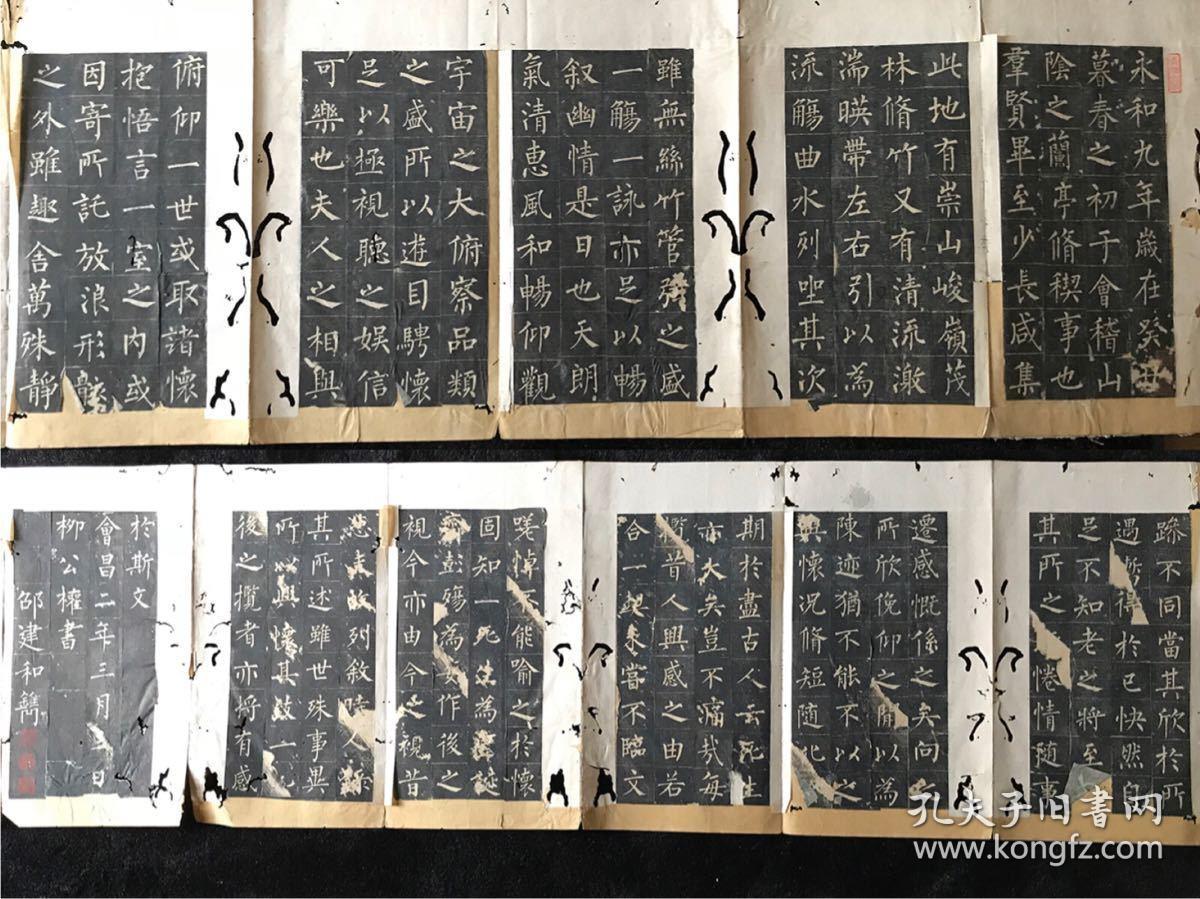 永和九年歲在癸丑
暮春之初于會稽山
陰之蘭亭脩禊事也
羣賢畢至少長咸集
此地有崇山峻嶺茂
林脩竹又有清流激
湍暎帶左右引以為
流觴曲水列坐其次
雖無絲竹管弦之盛
一觴一詠亦足以暢
叙幽情是日也天朗
氣清惠風和暢仰觀
宇宙之大俯察品類
之盛所以遊目騁懷
足以極視聽之娱信
可樂也夫人之相與
俯仰一世或取諸懷
抱悟言一室之內或
因寄所託放浪形骸
之外雖趣舍萬殊靜
躁不同當其欣於所
遇暫得於己快然自
足不知老之將至
其所之惓情隨事
遷感慨係之矣向之
所欣俛仰之間以為
陳迹猶不能不以之
興懷況脩短随化
期於盡古人云死生
亦大矣豈不痛哉每
攬昔人興感之由若
合一契未嘗不臨文
嗟悼能喻之於懷
固知一死生為誕
齊彭殤為妄作後之
視今亦由今之視昔
悲夫故列敘時人錄
其所述雖世殊事異
所以興懷其致一也
後之攬者亦將有感
於斯文
會昌二年三月日
柳公權書
邵建和鐫
孔夫子旧书网
www.kongfz.com